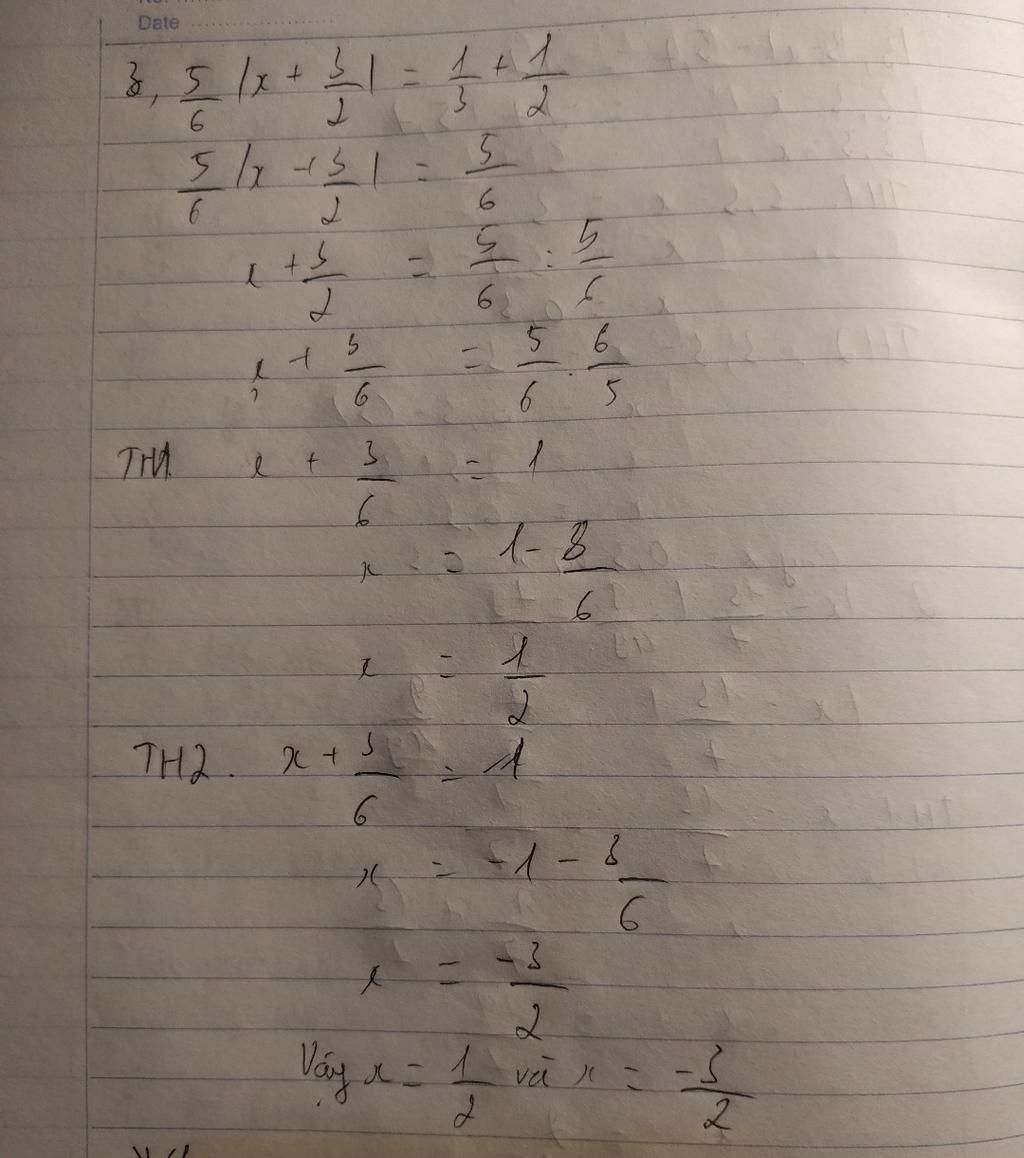 Date ....................
3, 5/6 |x + 3/2| = 1/3 + 1/2
5/6 |x + 3/2| = 5/6
x + 3/2 = 5/6 : 5/6
x + 3/6 = 5/6 . 6/5
TH1. x + 3/6 = 1
x = 1 - 3/6
x = 1/2
TH2. x + 3/6 = -1
x = -1 - 3/6
x = -3/2
Vậy x = 1/2 và x = -3/2